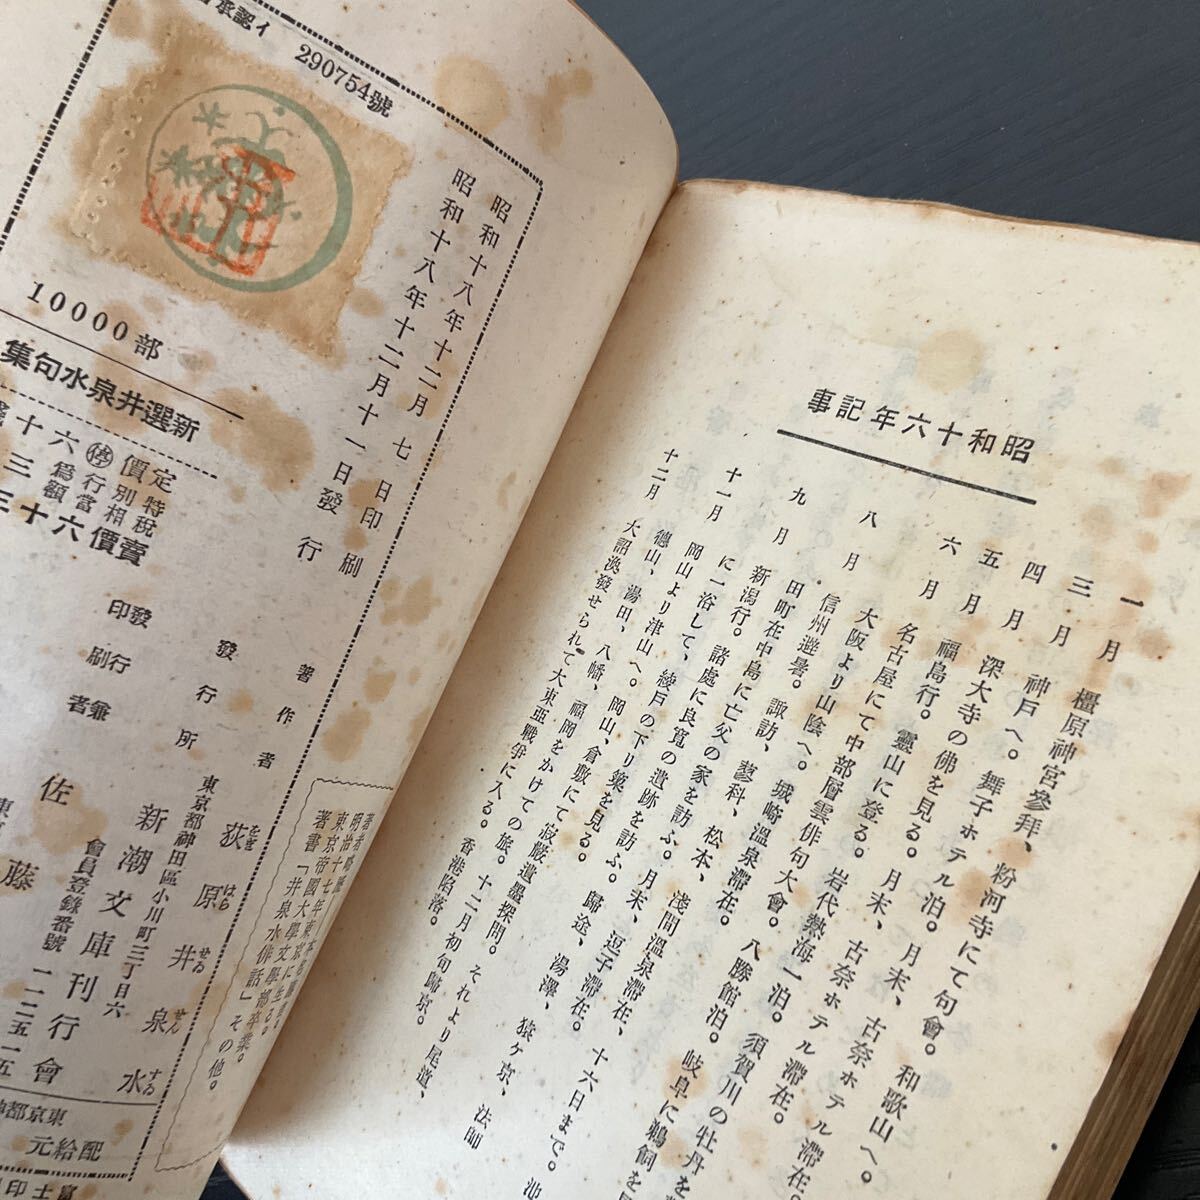 昭和十六年記事
一月 橿原神宮參拜、粉河寺にて句會。
三月 神戸へ。舞子ホテル泊。月末、和歌山へ。
四月 深大寺の佛を見る。月末、古奈ホテル滯在。
五月 福島行。靈山に登る。岩代熱海一泊。須賀川の牡丹を
六月 名古屋にて中部層雲俳句大會。八勝館泊。岐阜に鵜飼を
大阪より山陰へ。城崎溫泉滯在。
八月 信州避暑。諏訪、蓼科、松本、淺間溫泉滯在、
九月 田町在中島に亡父の家を訪ふ。月末、逗子滯在。
十一月 新潟行。諸處に良寛の遺跡を訪ふ。歸途、湯澤、猿ヶ京、法師
に一浴して、綾戸の下り簗を見る。
十二月 岡山より津山へ。岡山、倉敷にて寂嚴遺墨探問。それより尾道、
德山、湯田、八幡、福岡をかけての旅。十二月初旬歸京。
大詔渙發せられて大東亞戰爭に入る。香港陷落。
290754號
10000部
昭和十八年十二月七日印刷
昭和十八年十二月十一日發行
新選井泉水句集
定價
特別行爲税相當額
賣價六十三
著作者 荻原井泉水
をぎはらせゐせんすゐ
發行所 新潮文庫刊行會
東京都神田區小川町三丁目六
會員登錄番號
發行兼印刷者 佐藤
著者略歷
東京帝國大學文學部卒業。
著書「井泉水俳話」その他。
東京都神
配給元